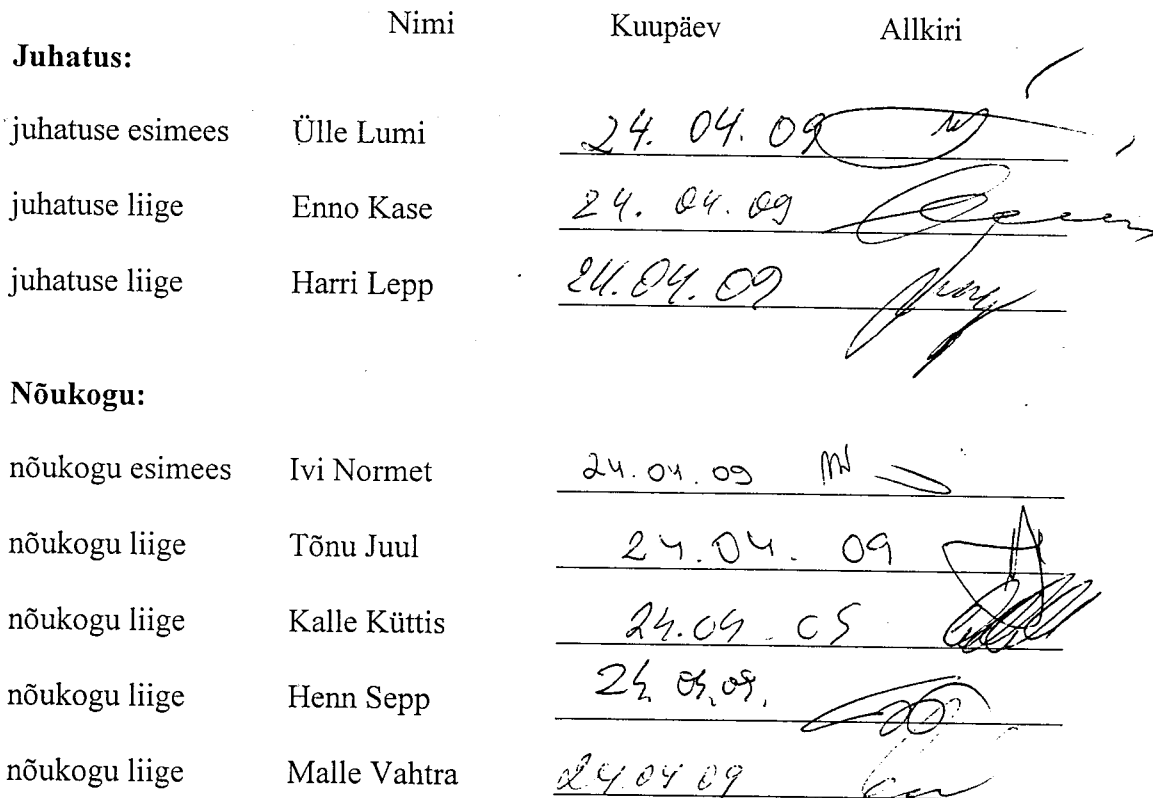 Nimi Kuupäev Allkiri
Juhatus:
juhatuse esimees Ülle Lumi 24. 04. 09
juhatuse liige Enno Kase 24. 04. 09
juhatuse liige Harri Lepp 24.04.09
Nõukogu:
nõukogu esimees Ivi Normet 24.04.09
nõukogu liige Tõnu Juul 24.04. 09
nõukogu liige Kalle Küttis 24.04.09
nõukogu liige Henn Sepp 24.04.09.
nõukogu liige Malle Vahtra 24.04 09